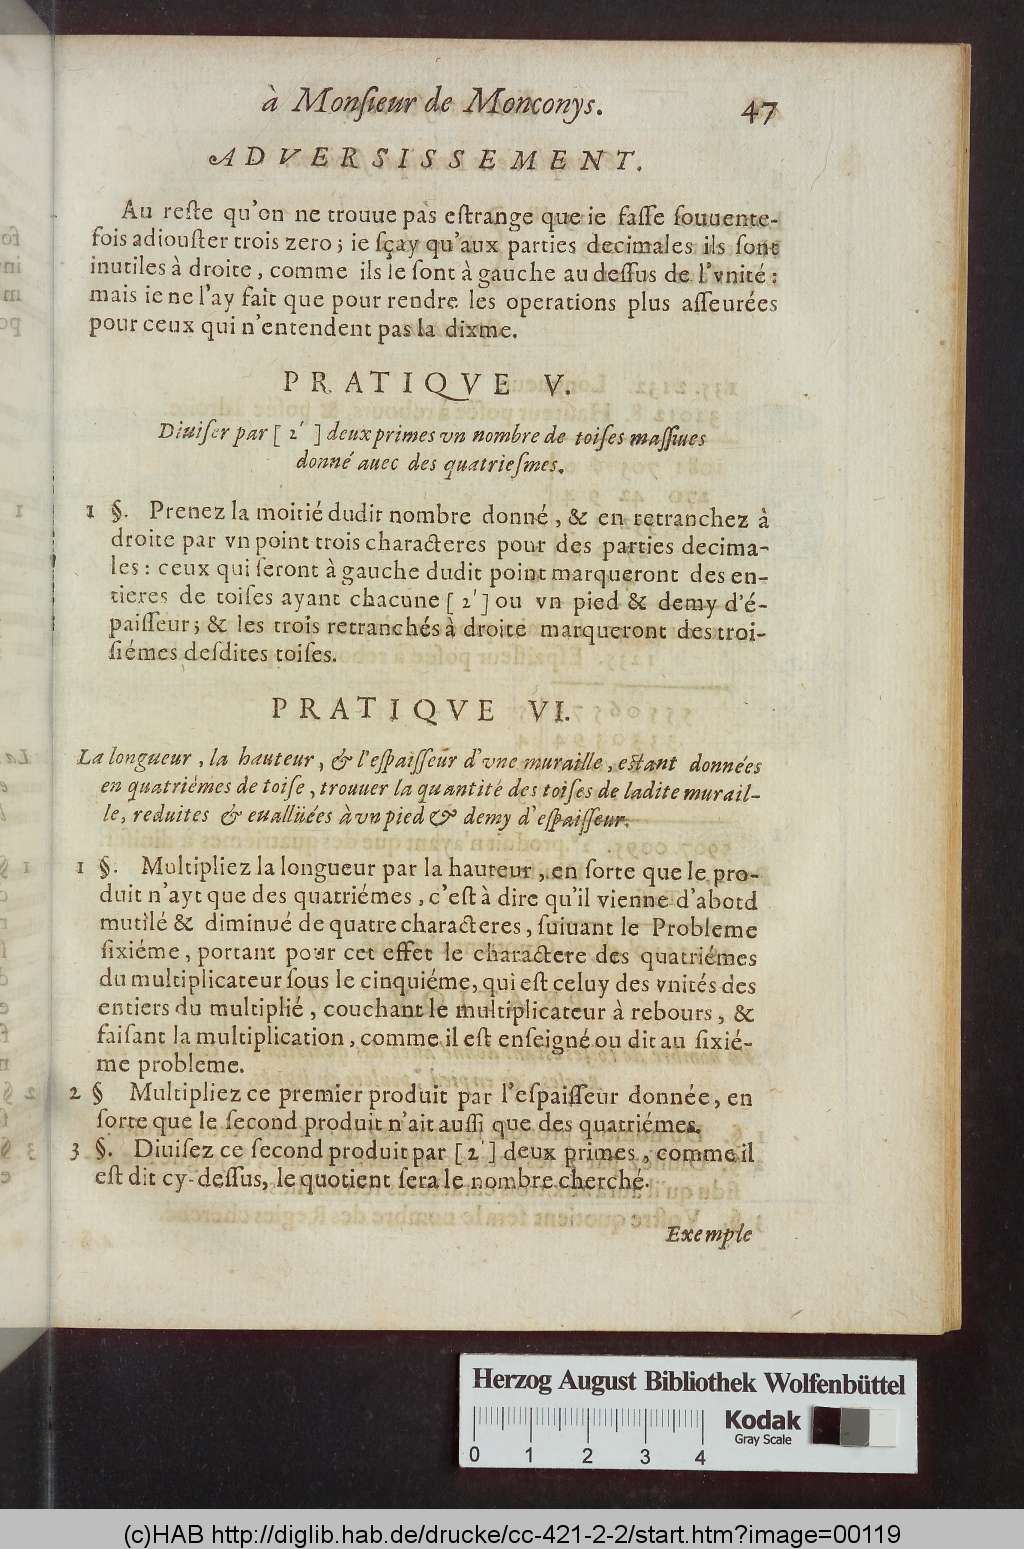 à Monſieur de Monconys. 47
ADVERSISSEMENT.
Au reſte qu'on ne trouue pas eſtrange que ie faſſe ſouuente-
fois adiouſter trois zero; ie ſçay qu'aux parties decimales ils ſont
inutiles à droite, comme ils le ſont à gauche au deſſus de l'vnité:
mais ie ne l'ay fait que pour rendre les operations plus aſſeurées
pour ceux qui n'entendent pas la dixme.
PRATIQVE V.
Diuiſer par [ 2′ ] deux primes vn nombre de toiſes maſſiues
donné auec des quatrieſmes.
1 §. Prenez la moitié dudit nombre donné, & en retranchez à
droite par vn point trois characteres pour des parties decima-
les: ceux qui ſeront à gauche dudit point marqueront des en-
tieres de toiſes ayant chacune [ 2′ ] ou vn pied & demy d'é-
paiſſeur; & les trois retranchés à droite marqueront des troi-
ſiémes deſdites toiſes.
PRATIQVE VI.
La longueur, la hauteur, & l'eſpaiſſeur d'vne muraille, eſtant données
en quatriémes de toiſe, trouuer la quantité des toiſes de ladite murail-
le, reduites & euallüées à vn pied & demy d'eſpaiſſeur.
1 §. Multipliez la longueur par la hauteur, en ſorte que le pro-
duit n'ayt que des quatriémes, c'eſt à dire qu'il vienne d'abotd
mutilé & diminué de quatre characteres, ſuiuant le Probleme
ſixiéme, portant pour cet effet le charactere des quatriémes
du multiplicateur ſous le cinquiéme, qui eſt celuy des vnités des
entiers du multiplié, couchant le multiplicateur à rebours, &
faiſant la multiplication, comme il eſt enſeigné ou dit au ſixié-
me probleme.
2 § Multipliez ce premier produit par l'eſpaiſſeur donnée, en
ſorte que le ſecond produit n'ait auſſi que des quatriémes.
3 §. Diuiſez ce ſecond produit par [ 2′ ] deux primes, comme il
eſt dit cy-deſſus, le quotient ſera le nombre cherché.
Exemple
Herzog August Bibliothek Wolfenbüttel
0 1 2 3 4
Kodak
Gray Scale
(c)HAB http://diglib.hab.de/drucke/cc-421-2-2/start.htm?image=00119